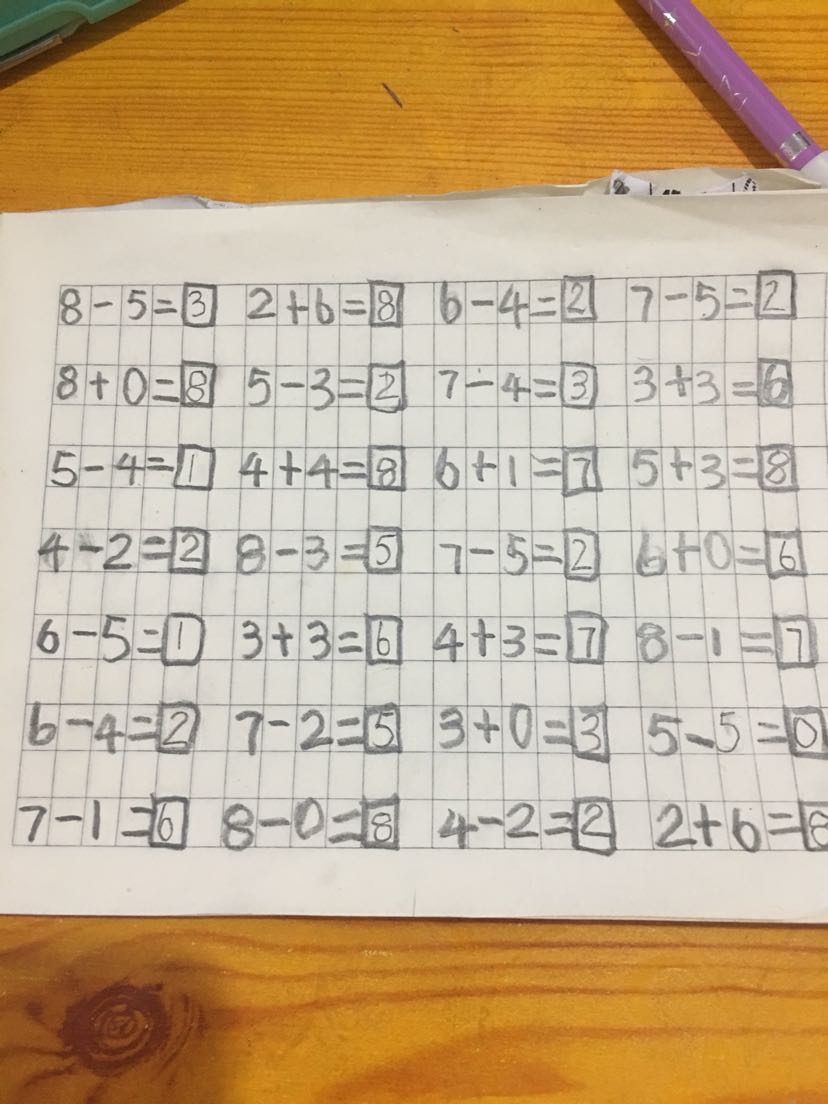 8-5=3 2+6=8 6-4=2 7-5=2
8+0=8 5-3=2 7-4=3 3+3=6
5-4=1 4+4=8 6+1=7 5+3=8
4-2=2 8-3=5 7-5=2 6+0=6
6-5=1 3+3=6 4+3=7 8-1=7
6-4=2 7-2=5 3+0=3 5-5=0
7-1=6 8-0=8 4-2=2 2+6=8